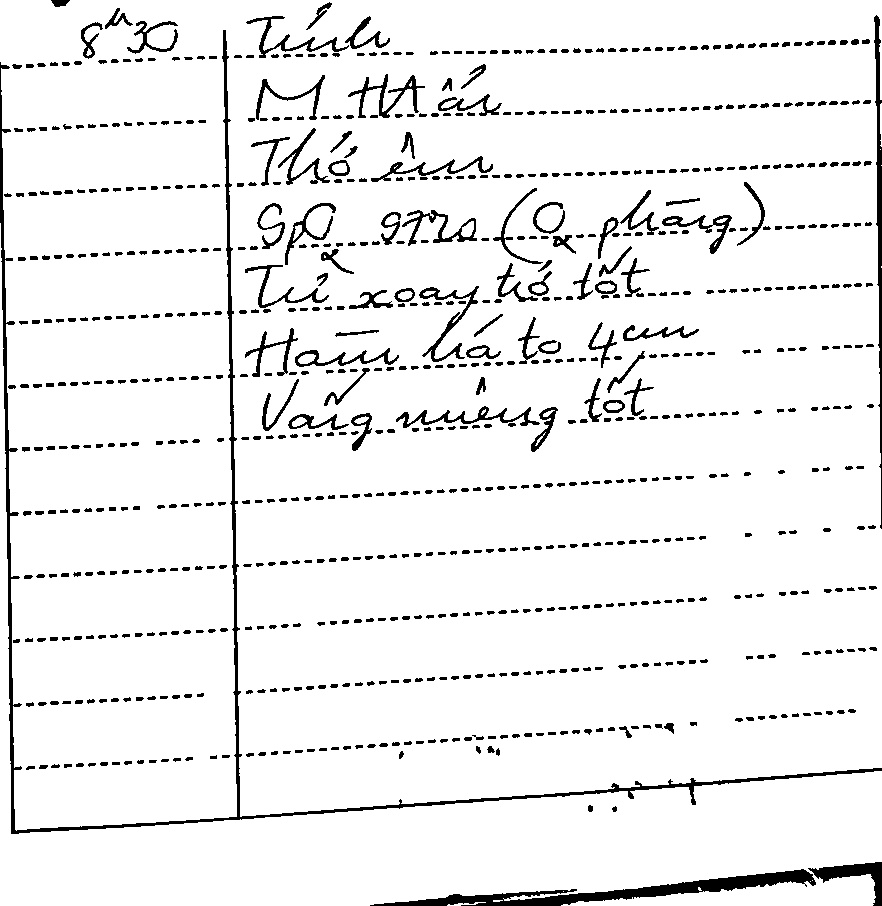 8h30 Tỉnh
M HA ổn
Thở êm
SpO2 97% (O2 phòng)
Tự xoay trở tốt
Hàm há to 4cm
Vùng miệng tốt